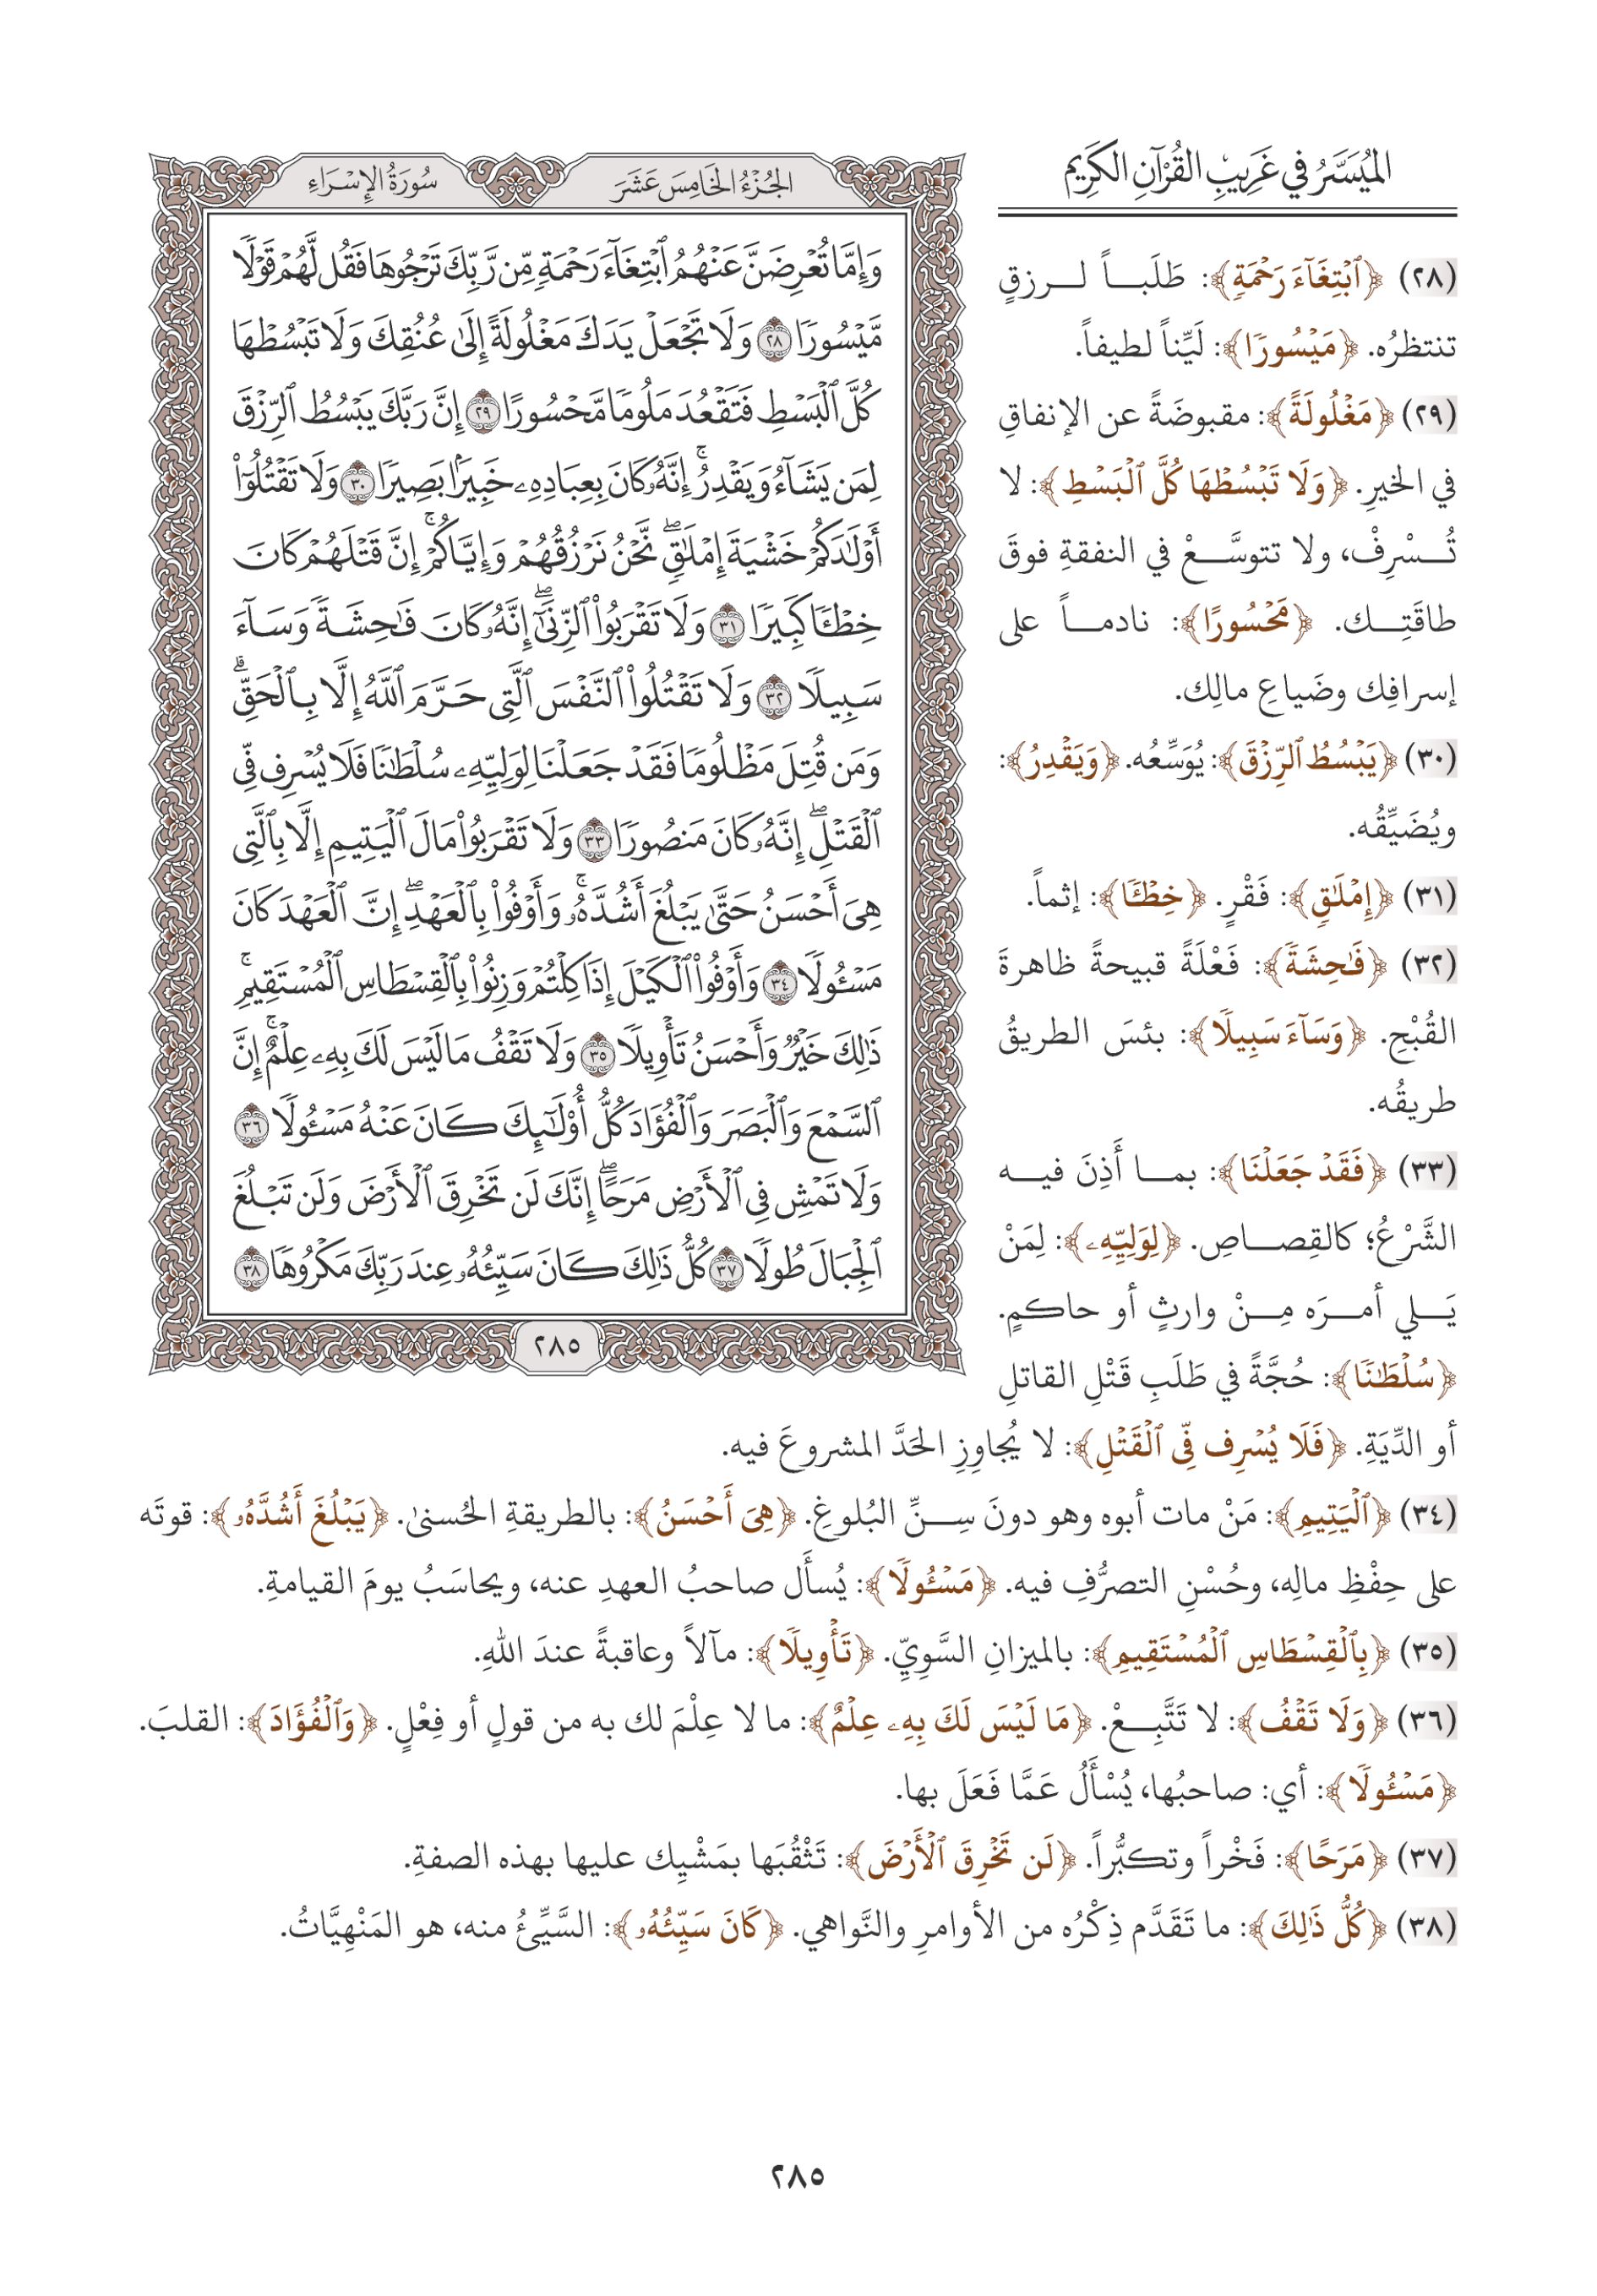 الميُسَّرُ في غَرِيبِ القُرْآنِ الكَرِيم
الجُزْءُ الخَامِسَ عَشَرَ
سُورَةُ الإِسْرَاءِ
وَإِمَّا تُعْرِضَنَّ عَنْهُمُ ٱبْتِغَآءَ رَحْمَةٍ مِّن رَّبِّكَ تَرْجُوهَا فَقُل لَّهُمْ قَوْلًا
مَّيْسُورًا ٢٨ وَلَا تَجْعَلْ يَدَكَ مَغْلُولَةً إِلَىٰ عُنُقِكَ وَلَا تَبْسُطْهَا
كُلَّ ٱلْبَسْطِ فَتَقْعُدَ مَلُومًا مَّحْسُورًا ٢٩ إِنَّ رَبَّكَ يَبْسُطُ ٱلرِّزْقَ
لِمَن يَشَآءُ وَيَقْدِرُ ۚ إِنَّهُۥ كَانَ بِعِبَادِهِۦ خَبِيرًۢا بَصِيرًا ٣٠ وَلَا تَقْتُلُوٓا۟
أَوْلَٰدَكُمْ خَشْيَةَ إِمْلَٰقٍ ۖ نَّحْنُ نَرْزُقُهُمْ وَإِيَّاكُمْ ۚ إِنَّ قَتْلَهُمْ كَانَ
خِطْـًٔا كَبِيرًا ٣١ وَلَا تَقْرَبُوا۟ ٱلزِّنَىٰٓ ۖ إِنَّهُۥ كَانَ فَٰحِشَةً وَسَآءَ
سَبِيلًا ٣٢ وَلَا تَقْتُلُوا۟ ٱلنَّفْسَ ٱلَّتِى حَرَّمَ ٱللَّهُ إِلَّا بِٱلْحَقِّ ۗ
وَمَن قُتِلَ مَظْلُومًا فَقَدْ جَعَلْنَا لِوَلِيِّهِۦ سُلْطَٰنًا فَلَا يُسْرِف فِّى
ٱلْقَتْلِ ۖ إِنَّهُۥ كَانَ مَنصُورًا ٣٣ وَلَا تَقْرَبُوا۟ مَالَ ٱلْيَتِيمِ إِلَّا بِٱلَّتِى
هِىَ أَحْسَنُ حَتَّىٰ يَبْلُغَ أَشُدَّهُۥ ۚ وَأَوْفُوا۟ بِٱلْعَهْدِ ۖ إِنَّ ٱلْعَهْدَ كَانَ
مَسْـُٔولًا ٣٤ وَأَوْفُوا۟ ٱلْكَيْلَ إِذَا كِلْتُمْ وَزِنُوا۟ بِٱلْقِسْطَاسِ ٱلْمُسْتَقِيمِ ۚ
ذَٰلِكَ خَيْرٌ وَأَحْسَنُ تَأْوِيلًا ٣٥ وَلَا تَقْفُ مَا لَيْسَ لَكَ بِهِۦ عِلْمٌ ۚ إِنَّ
ٱلسَّمْعَ وَٱلْبَصَرَ وَٱلْفُؤَادَ كُلُّ أُو۟لَٰٓئِكَ كَانَ عَنْهُ مَسْـُٔولًا ٣٦
وَلَا تَمْشِ فِى ٱلْأَرْضِ مَرَحًا ۖ إِنَّكَ لَن تَخْرِقَ ٱلْأَرْضَ وَلَن تَبْلُغَ
ٱلْجِبَالَ طُولًا ٣٧ كُلُّ ذَٰلِكَ كَانَ سَيِّئُهُۥ عِندَ رَبِّكَ مَكْرُوهًا ٣٨
٢٨٥
(٢٨) ﴿ٱبْتِغَآءَ رَحْمَةٍ﴾: طَلَباً لرزقٍ
تنتظرُه. ﴿مَيْسُورًا﴾: لَيِّناً لطيفاً.
(٢٩) ﴿مَغْلُولَةً﴾: مقبوضَةً عن الإنفاقِ
في الخيرِ. ﴿وَلَا تَبْسُطْهَا كُلَّ ٱلْبَسْطِ﴾: لا
تُسْرِفْ، ولا تتوسَّعْ في النفقةِ فوقَ
طاقَتِك. ﴿مَحْسُورًا﴾: نادماً على
إسرافِك وضَياعِ مالِك.
(٣٠) ﴿يَبْسُطُ ٱلرِّزْقَ﴾: يُوَسِّعُه. ﴿وَيَقْدِرُ﴾:
ويُضَيِّقُه.
(٣١) ﴿إِمْلَٰقٍ﴾: فَقْرٍ. ﴿خِطْـًٔا﴾: إثماً.
(٣٢) ﴿فَٰحِشَةً﴾: فَعْلَةً قبيحةً ظاهرةَ
القُبْحِ. ﴿وَسَآءَ سَبِيلًا﴾: بئسَ الطريقُ
طريقُه.
(٣٣) ﴿فَقَدْ جَعَلْنَا﴾: بما أَذِنَ فيه
الشَّرْعُ؛ كالقِصاصِ. ﴿لِوَلِيِّهِۦ﴾: لِمَنْ
يَلي أمرَه مِنْ وارثٍ أو حاكمٍ.
﴿سُلْطَٰنًا﴾: حُجَّةً في طَلَبِ قَتْلِ القاتلِ
أو الدِّيَةِ. ﴿فَلَا يُسْرِف فِّى ٱلْقَتْلِ﴾: لا يُجاوِزِ الحَدَّ المشروعَ فيه.
(٣٤) ﴿ٱلْيَتِيمِ﴾: مَنْ مات أبوه وهو دونَ سِنِّ البُلوغِ. ﴿هِىَ أَحْسَنُ﴾: بالطريقةِ الحُسنىٰ. ﴿يَبْلُغَ أَشُدَّهُۥ﴾: قوتَه
على حِفْظِ مالِه، وحُسْنِ التصرُّفِ فيه. ﴿مَسْـُٔولًا﴾: يُسأَل صاحبُ العهدِ عنه، ويحاسَبُ يومَ القيامةِ.
(٣٥) ﴿بِٱلْقِسْطَاسِ ٱلْمُسْتَقِيمِ﴾: بالميزانِ السَّوِيِّ. ﴿تَأْوِيلًا﴾: مآلاً وعاقبةً عندَ اللهِ.
(٣٦) ﴿وَلَا تَقْفُ﴾: لا تَتَّبِعْ. ﴿مَا لَيْسَ لَكَ بِهِۦ عِلْمٌ﴾: ما لا عِلْمَ لك به من قولٍ أو فِعْلٍ. ﴿وَٱلْفُؤَادَ﴾: القلبَ.
﴿مَسْـُٔولًا﴾: أي: صاحبُها، يُسْأَلُ عَمَّا فَعَلَ بها.
(٣٧) ﴿مَرَحًا﴾: فَخْراً وتكبُّراً. ﴿لَن تَخْرِقَ ٱلْأَرْضَ﴾: تَثْقُبَها بمَشْيِك عليها بهذه الصفةِ.
(٣٨) ﴿كُلُّ ذَٰلِكَ﴾: ما تَقَدَّم ذِكْرُه من الأوامرِ والنَّواهي. ﴿كَانَ سَيِّئُهُۥ﴾: السَّيِّئُ منه، هو المَنْهِيَّاتُ.
٢٨٥